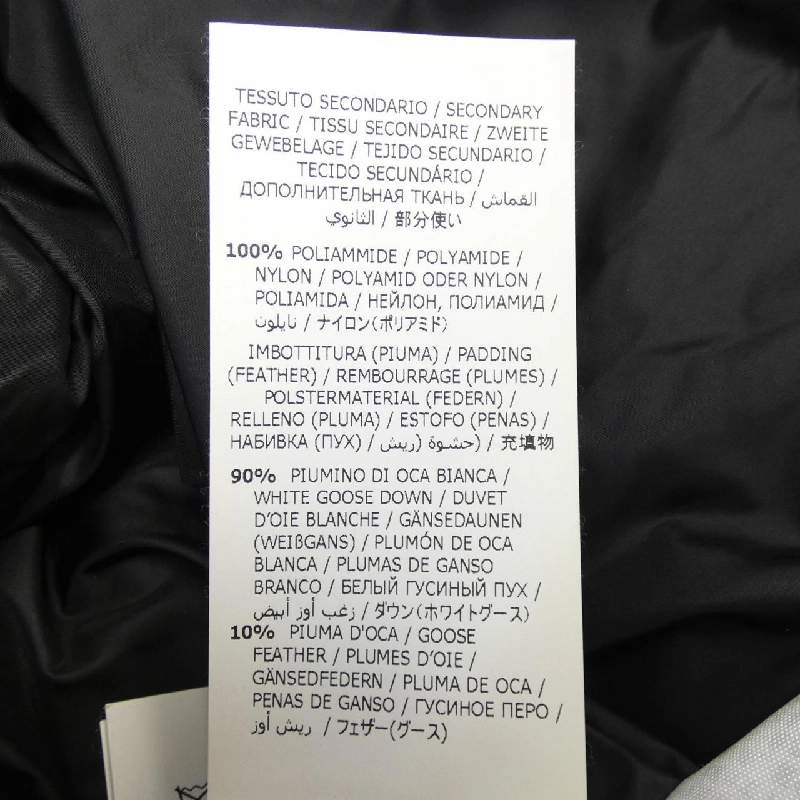 TESSUTO SECONDARIO / SECONDARY
FABRIC / TISSU SECONDAIRE / ZWEITE
GEWEBELAGE / TEJIDO SECUNDARIO /
TECIDO SECUNDÁRIO /
ДОПОЛНИТЕЛЬНАЯ ТКАНЬ / القماش
الثانوي / 部分使い
100% POLIAMMIDE / POLYAMIDE /
NYLON / POLYAMID ODER NYLON /
POLIAMIDA / НЕЙЛОН, ПОЛИАМИД /
نايلون / ナイロン(ポリアミド)
IMBOTTITURA (PIUMA) / PADDING
(FEATHER) / REMBOURRAGE (PLUMES) /
POLSTERMATERIAL (FEDERN) /
RELLENO (PLUMA) / ESTOFO (PENAS) /
НАБИВКА (ПУХ) / حشوة (ريش) / 充填物
90% PIUMINO DI OCA BIANCA /
WHITE GOOSE DOWN / DUVET
D'OIE BLANCHE / GÄNSEDAUNEN
(WEIßGANS) / PLUMÓN DE OCA
BLANCA / PLUMAS DE GANSO
BRANCO / БЕЛЫЙ ГУСИНЫЙ ПУХ /
زغب أوز أبيض / ダウン(ホワイトグース)
10% PIUMA D'OCA / GOOSE
FEATHER / PLUMES D'OIE /
GÄNSEDFEDERN / PLUMA DE OCA /
PENAS DE GANSO / ГУСИНОЕ ПЕРО /
ريش أوز / フェザー(グース)